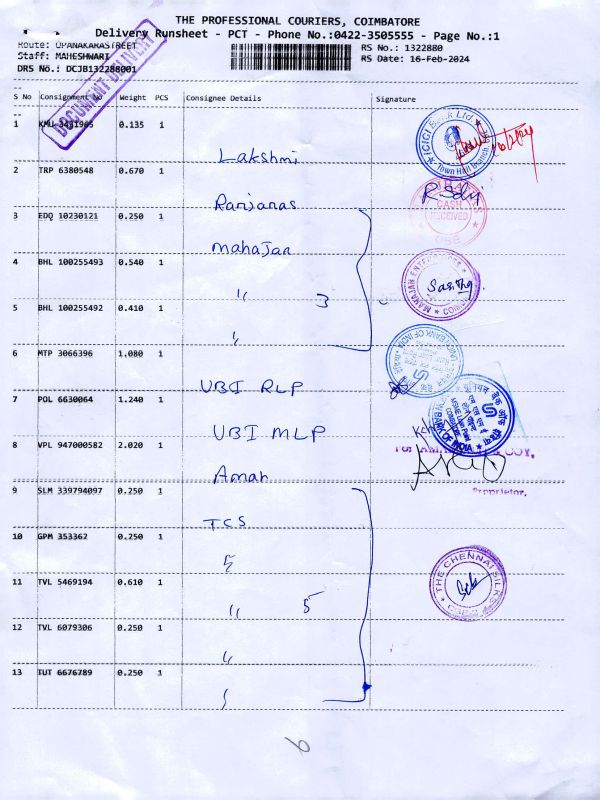 THE PROFESSIONAL COURIERS, COIMBATORE
Delivery Runsheet - PCT - Phone No.:0422-3505555 - Page No.:1
Route: OPANAKARASTREET
RS No.: 1322880
Staff: MAHESHWARI
RS Date: 16-Feb-2024
DRS No.: DCJB132288001
DOCUMENT DELIVERY
S No Consignment No Weight PCS Consignee Details Signature
1 KMU 3431965 0.135 1 Lakshmi
ICICI Bank Ltd. Town Hall Branch
2 TRP 6380548 0.670 1 Ranjanas
CASH RECEIVED
3 EDQ 10230121 0.250 1 Mahajan
4 BHL 100255493 0.540 1 " 3
Sasitha
5 BHL 100255492 0.410 1 "
6 MTP 3066396 1.080 1 UBI RLP
7 POL 6630064 1.240 1 UBI MLP
UNION BANK OF INDIA
8 VPL 947000582 2.020 1 Aman
Proprietor.
9 SLM 339794097 0.250 1 TCS
10 GPM 353362 0.250 1 "
11 TVL 5469194 0.610 1 " 5
THE CHENNAI SILKS
12 TVL 6079306 0.250 1 "
13 TUT 6676789 0.250 1 "